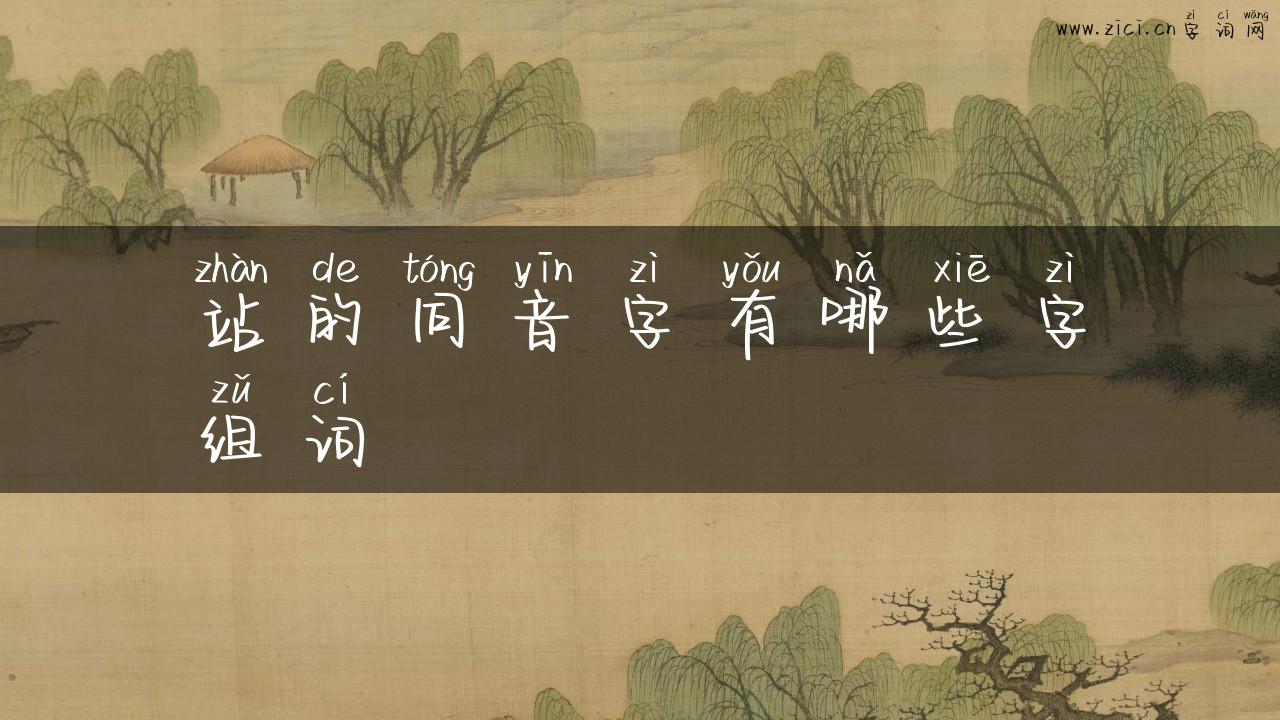 zì cí wǎng
www.zici.cn 字 词 网
zhàn de tóng yīn zì yǒu nǎ xiē zì
站 的 同 音 字 有 哪 些 字
zǔ cí
组 词